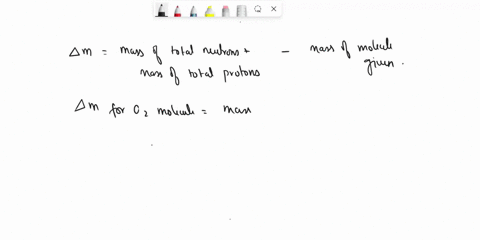 Δm = mass of total neutrons + - mass of molecule
mass of total protons given.
Δm for O2 molecule = mass